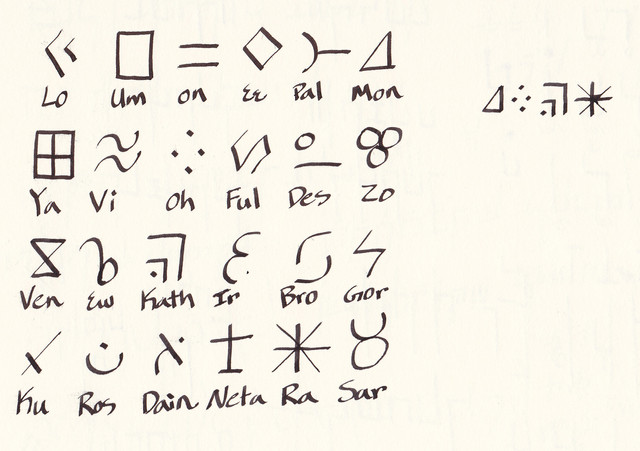 Lo Um on Ee Pal Mon
Ya Vi oh Ful Des Zo
Ven Ew Kath Ir Bro Gor
Ku Ros Dain Neta Ra Sar